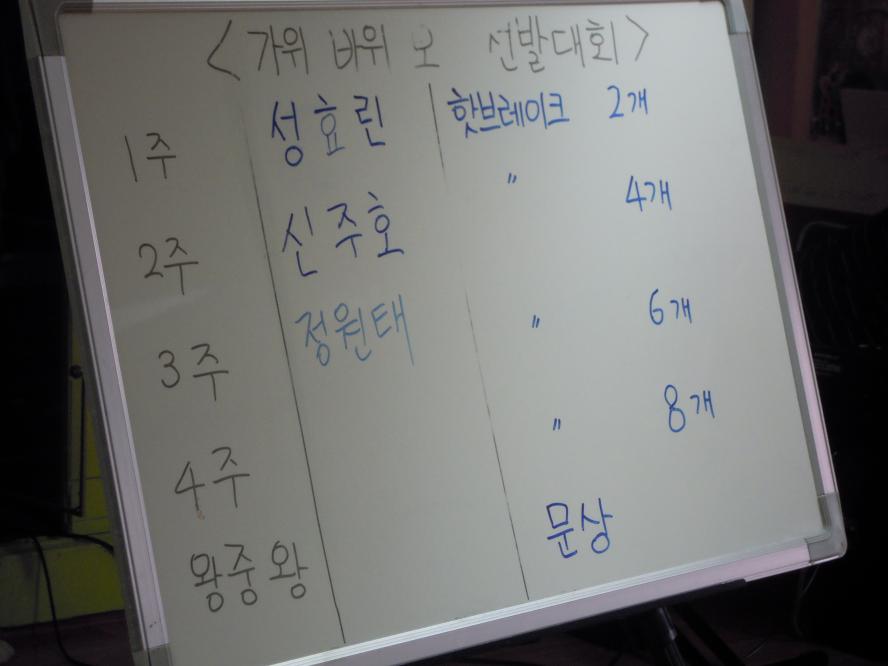 <가위 바위 오 선발대회>
1주 성효린 핫브레이크 2개
2주 신주호 〃 4개
3주 정원태 〃 6개
4주 〃 8개
왕중왕 문상